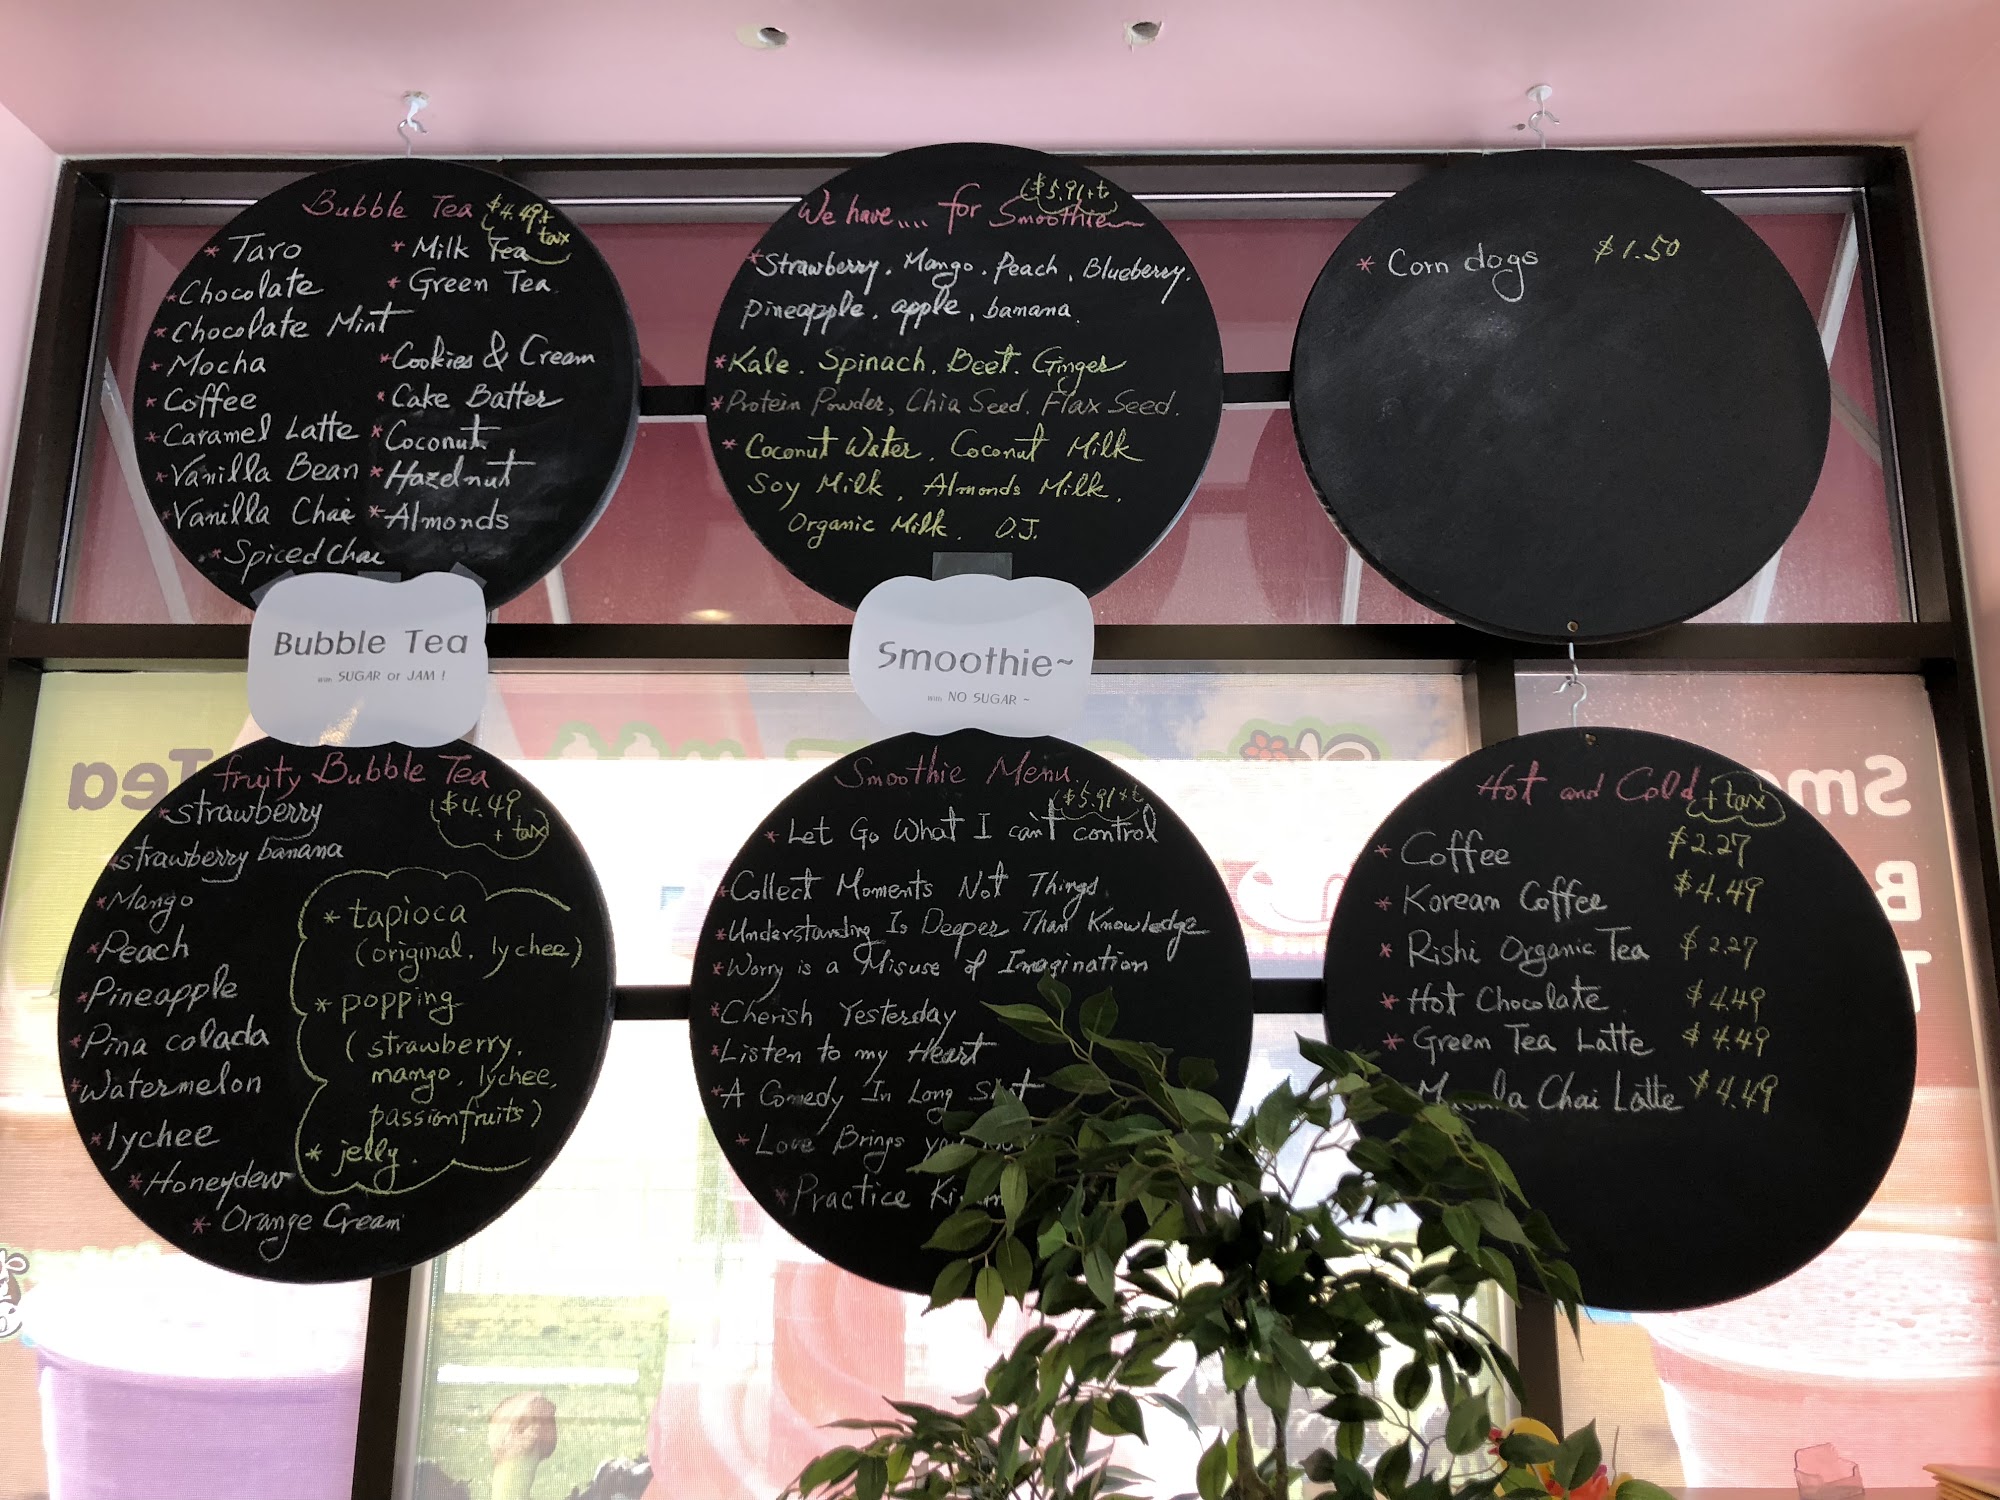 Bubble Tea $4.49+
tax
* Taro
* Milk Tea
* Chocolate
* Green Tea
* Chocolate Mint
* Mocha
* Cookies & Cream
* Coffee
* Cake Batter
* Caramel Latte
* Coconut
* Vanilla Bean
* Hazelnut
* Vanilla Chai
* Almonds
* Spiced Chai
We have.... for Smoothie
($5.91+t)
* Strawberry. Mango. Peach, Blueberry.
Pineapple. apple, banana.
* Kale. Spinach. Beet. Ginger
* Protein Powder, Chia Seed. Flax Seed.
* Coconut Water. Coconut Milk
Soy Milk, Almonds Milk,
Organic Milk. O.J.
* Corn dogs $1.50
Bubble Tea
with SUGAR or JAM !
Smoothie~
with NO SUGAR ~
fruity Bubble Tea
($4.49
+ tax)
* strawberry
strawberry banana
* Mango
* Peach
* Pineapple
* Pina colada
* Watermelon
* lychee
* Honeydew
* Orange Cream
* tapioca
(original, lychee)
* popping
(strawberry,
mango, lychee,
passionfruits)
* jelly.
Smoothie Menu
($5.91+t
* Let Go What I can't control
* Collect Moments Not Things.
* Understanding Is Deeper Than Knowledge
* Worry is a Misuse of Imagination
* Cherish Yesterday
* Listen to my Heart
* A Comedy In Long Shot
* Love Brings
* Practice
Hot and Cold + tax
* Coffee $2.27
* Korean Coffee $4.49
* Rishi Organic Tea $2.27
* Hot Chocolate $4.49
* Green Tea Latte $4.49
Masala Chai Latte $4.49
Tea